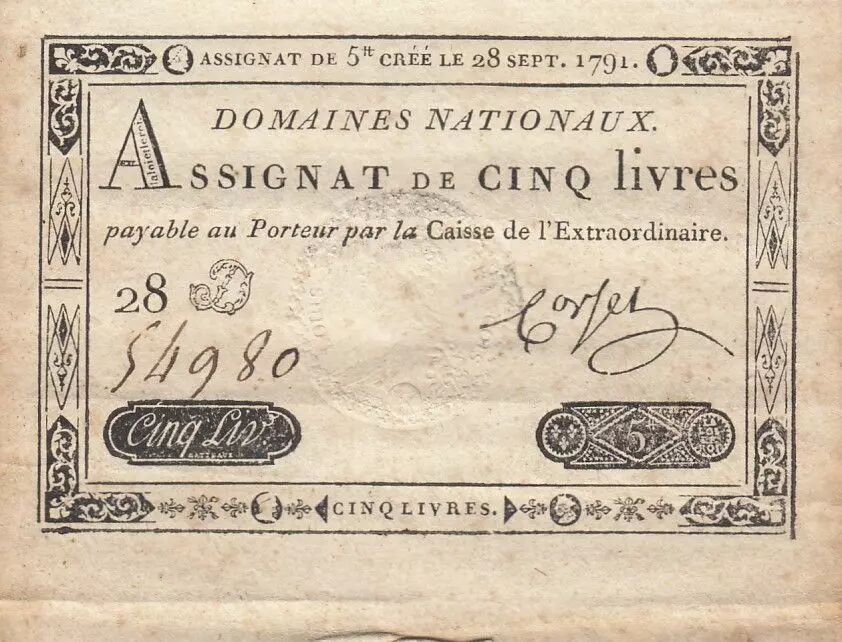 ASSIGNAT DE 5ᵗᵗ CRÉÉ LE 28 SEPT. 1791.
DOMAINES NATIONAUX.
ASSIGNAT DE CINQ livres
payable au Porteur par la Caisse de l'Extraordinaire.
28 D
54980
Corsel
Cinq Liv.
5
CINQ LIVRES.